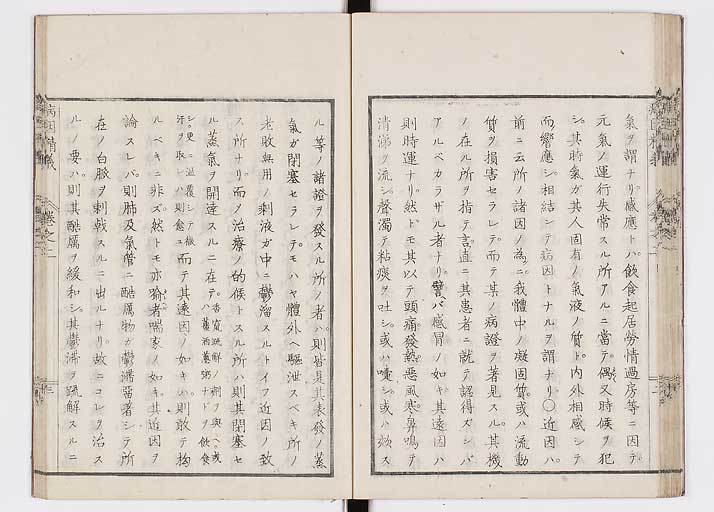 氣ヲ謂ナリ。感應トハ。飲食起居勞情過房等ニ因テ。
元氣ノ運行失常スル所アルニ當テ。偶又時候ヲ犯
シ。其時氣ガ其人固有ノ氣液ノ質ト。内外相感シテ
而響應シ。相結シテ病因トナルヲ謂ナリ〇近因ハ。
前ニ云所ノ諸因ノ為ニ。我體中ノ凝固質。或ハ流動
質ヲ損害セラレテ。而テ某ノ病證ヲ著見スル。其機
ノ在ル所ヲ指テ言。直ニ其患者ニ就テ認得ズンバ
アルベカラザル者ナリ。譬バ感冒ノ如キ。其遠因ハ
則時運ナリ。然トモ其以テ頭痛發熱惡風寒鼻鳴テ
清涕ヲ流シ。聲濁テ粘痰ヲ吐シ。或ハ嚏シ。或ハ欬ス
ル等ノ諸證ヲ發スル所ノ者ハ。則皆是其表發ノ蒸
氣ガ閉塞セラレテ。モハヤ體外ヘ驅泄スベキ所ノ
老敗無用ノ剩液ガ中ニ鬱溜スルトイフ近因ノ致
ス所ナリ。而ノ治療ノ的候トスル所ハ則其閉塞セ
ル蒸氣ヲ開達スルニ在テ。香竄疏解ノ劑ヲ與ヘ。或ハ蓄酒薑粥ナドヲ飲食
シ。更ニ温覆シテ微汗ヲ取レハ則愈ユ而テ其遠因ノ如キハ。則敢テ拘
ルベキニ非ズ。然トモ亦瘉者喘家ノ如キ。其近因ヲ
論スレバ。則肺及氣管ニ酷厲物ガ鬱滯畱著シテ所
在ノ白脈ヲ刺戟スルニ出ルナリ。故ニコレヲ治ス
ルノ要ハ。則其酷厲ヲ緩和シ。其鬱滯ヲ疏解スルニ
病因精義
卷之一
三